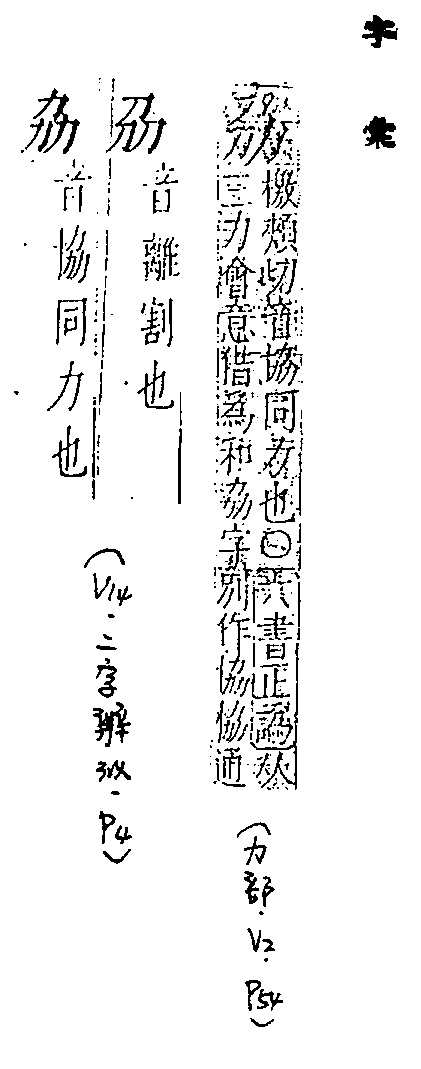 字彙
劦 機頰切音協同力也〇六書正譌从
三力會意借爲和劦字別作協恊通
(力部·V2·P54)
刕 音離割也
劦 音協同力也
(V14·二字辨似·P4)